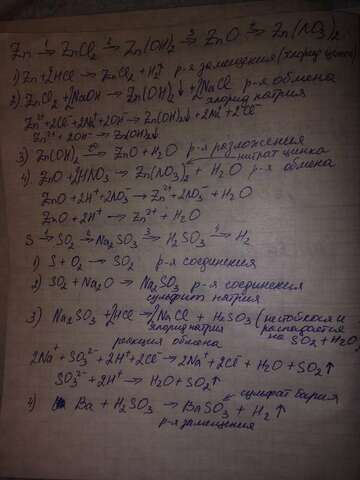 Zn →¹ ZnCl₂ →² Zn(OH)₂ →³ ZnO →⁴ Zn(NO₃)₂
1) Zn + 2HCl → ZnCl₂ + H₂↑ р-я замещения (хлорид цинка)
2) ZnCl₂ + 2NaOH → Zn(OH)₂↓ + 2NaCl р-я обмена
хлорид натрия
Zn²⁺ + 2Cl⁻ + 2Na⁺ + 2OH⁻ → Zn(OH)₂↓ + 2Na⁺ + 2Cl⁻
Zn²⁺ + 2OH⁻ → Zn(OH)₂↓
3) Zn(OH)₂ →ᵗ° ZnO + H₂O р-я разложения
нитрат цинка
4) ZnO + 2HNO₃ → Zn(NO₃)₂ + H₂O р-я обмена
ZnO + 2H⁺ + 2NO₃⁻ → Zn²⁺ + 2NO₃⁻ + H₂O
ZnO + 2H⁺ → Zn²⁺ + H₂O
S →¹ SO₂ →² Na₂SO₃ →³ H₂SO₃ →⁴ H₂
1) S + O₂ → SO₂ р-я соединения
2) SO₂ + Na₂O → Na₂SO₃ р-я соединения
сульфит натрия
3) Na₂SO₃ + 2HCl → 2NaCl + H₂SO₃ (нестойкая и
хлорид натрия распадается
реакция обмена на SO₂ + H₂O
2Na⁺ + SO₃²⁻ + 2H⁺ + 2Cl⁻ → 2Na⁺ + 2Cl⁻ + H₂O + SO₂↑
SO₃²⁻ + 2H⁺ → H₂O + SO₂↑
сульфат бария
4) Ba + H₂SO₃ → BaSO₃ + H₂↑
р-я замещения